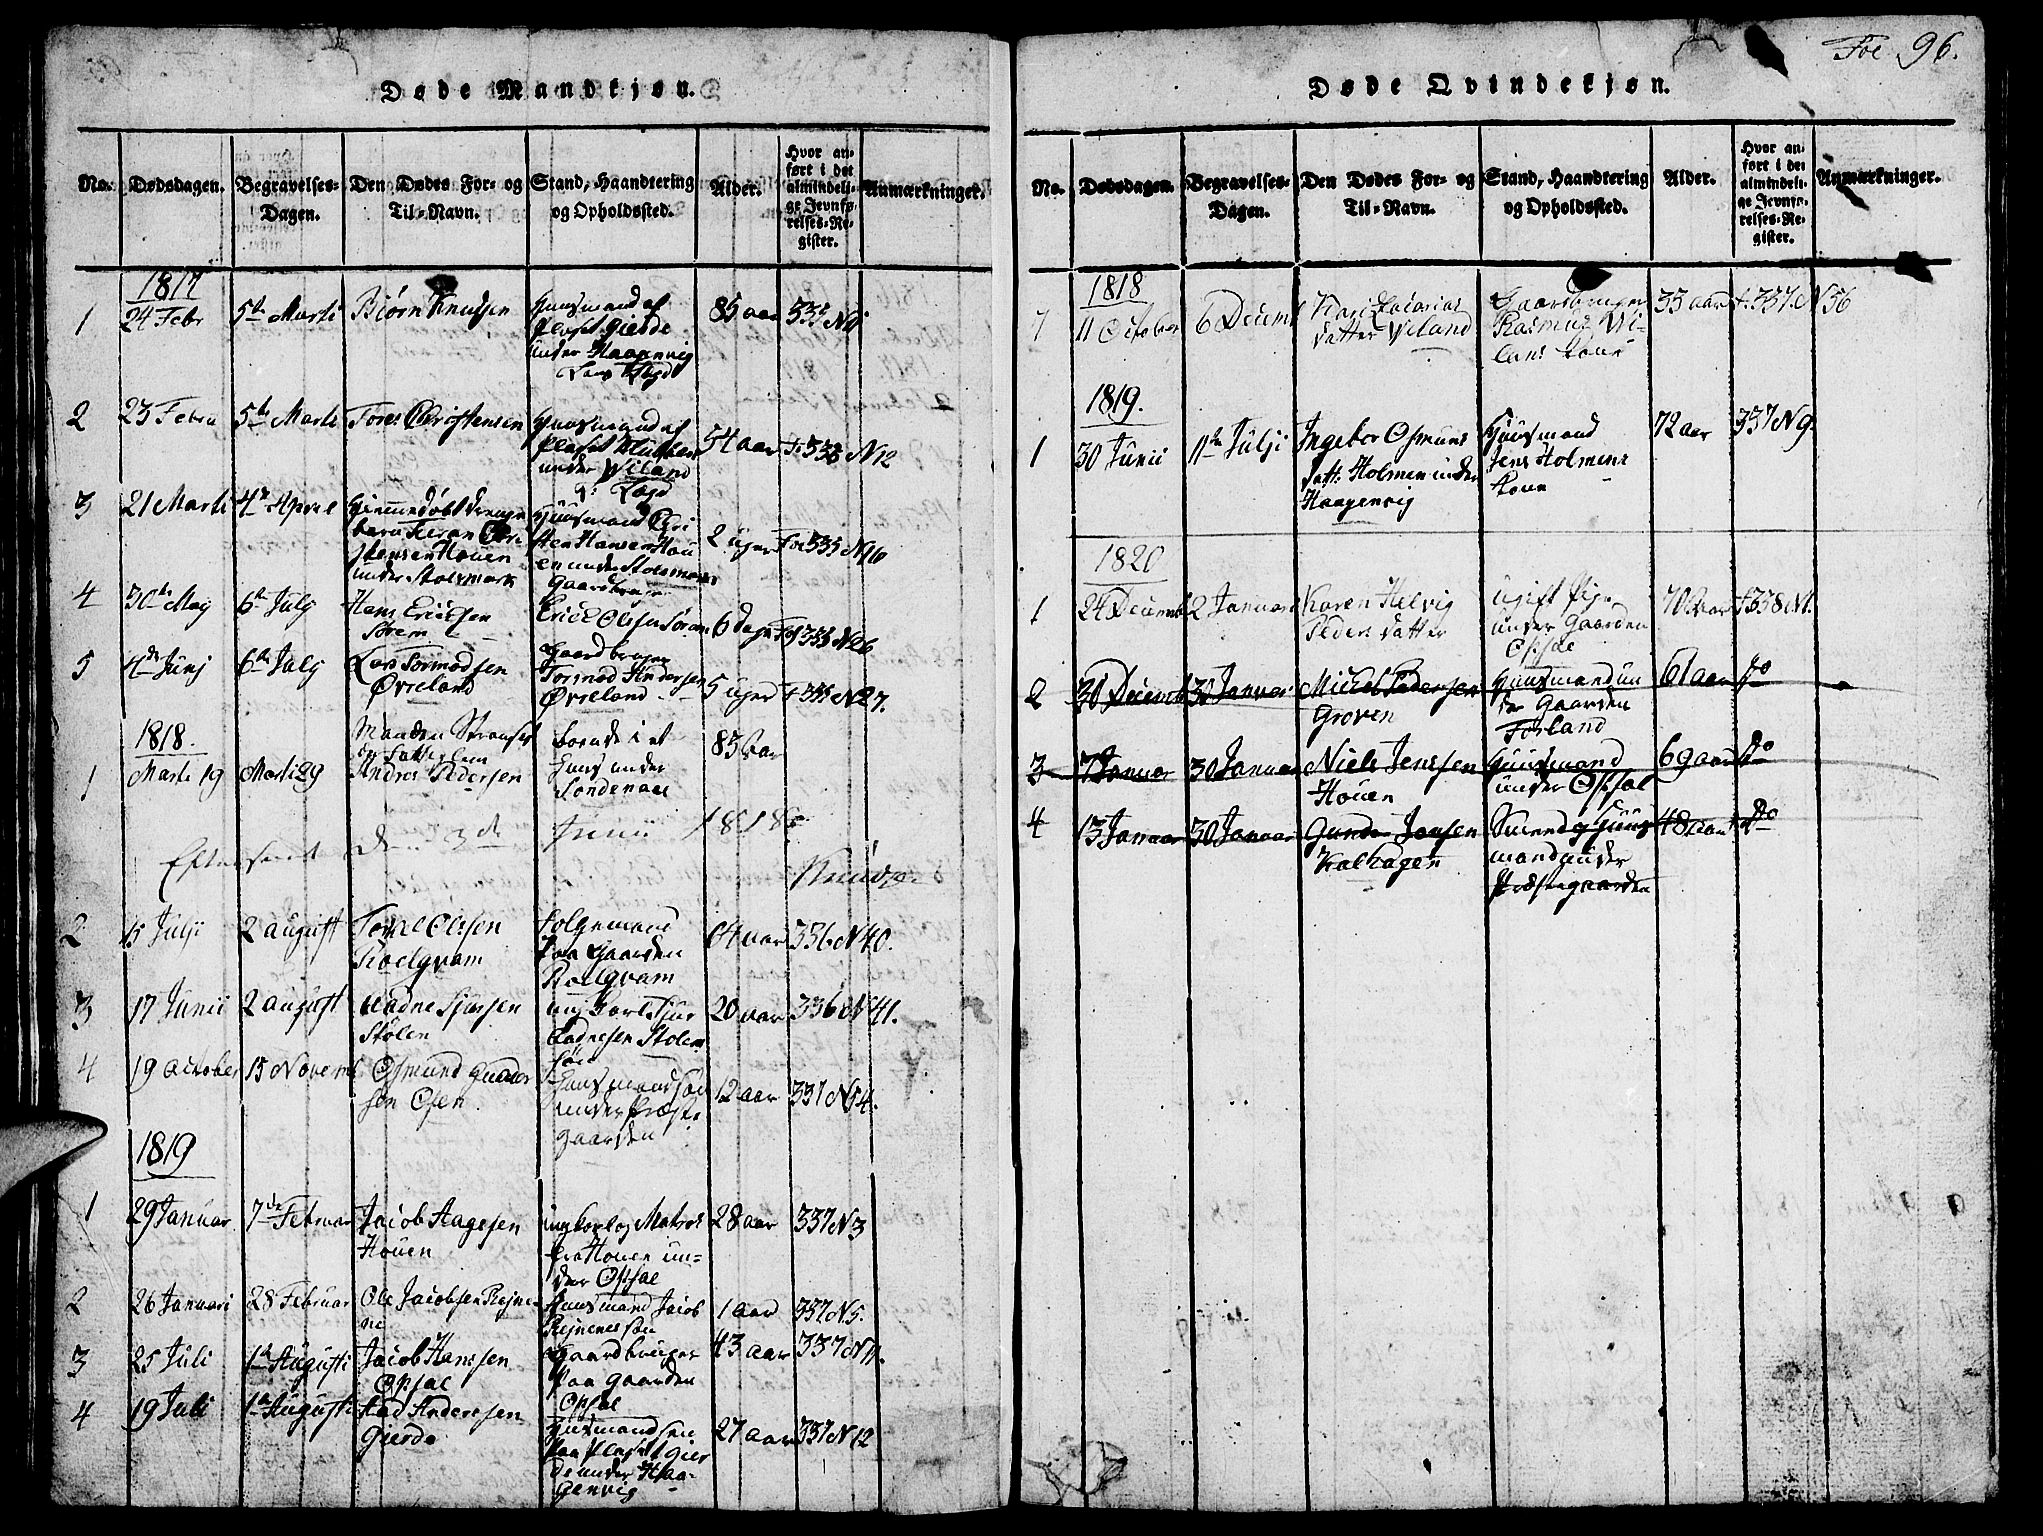 Fol 96.
Døde Mandkjøn.
No. Dødsdagen. Begravelses-Dagen. Den Dødes For- og Til-Navn. Stand, Haandtering og Opholdssted. Alder. Hvor anført i det almindelige Jevnførelses-Register. Anmærkninger.
1817
1 24 Febr 5te Marti Biørn Knudsen Huusmand af
Pladset Gierde
under Haagenvig
85 aar 335 N 9
2 23 Febru 5te Marti Tores Christensen Huusmand af
Pladset
under Viland
54 aar Fo 335 N 12
3 21 Marti 4de Aprel Hiemmedøbt Drenge
barn
Huusmand Chri
sten Hansen Hou
en under
2 uger Fol 335 N 16
under
4 30te May 6te July Hans Ericksen
Sørem
Erick Olsen Sørem 6 dage Fol 335 N 26
Gaardbruger
5 4de Junj 6te July Lars Tormodsen
Øvreland
Gaardbruger
Tormod Andersen
Øvreland
5 uger F 335 N 27.
1818.
1 Marti 19 Marti 29 Manden
Andres Pedersen
boende i et
Huus under
Søndenaae
83 aar
Efterseet den 3de Junii 1818
Knudsen
2 15 Julji 2 august Torkel Olssen
Røelqvam
Folgemand
paa Gaarden
Roelqvam
64 aar 336 N 40.
3 17 Junii 2 august Ladne Sjursen
Stølen
ung Karl Sjur
Ladnesen Stølen
søn
20 aar 336 N 41.
4 19 october 15 Novemb Osmund Gunder
sen Osen
Huusmandssøn
under Præste
gaarden
12 aar 337 N 54.
1819
1 29 Januar 7de Februar Jacob Aagesen
Houen
ung Karl og Matros
fra Houen un-
der Opsal
28 aar 337 N 3
2 26 Januari 28 Februar Ole Jacobsen Rejne-
ne
Huusmand Jacob
Rejnenes søn
1 aar 337 N 5.
3 25 Juli 1te Augusti Jacob Hanssen
Opsal
Gaardbruger
paa Gaarden
Opsal
43 aar 337 N 11.
4 19 Juli 1te Augusti Aad Anderssen
Gierde
Huusmandsøn
paa Pladset Gier
de under Haa-
genvig
27 aar 337 N 12
Døde Qvindekjøn.
No. Dødsdagen. Begravelses-Dagen. Den Dødes For- og Til-Navn. Stand, Haandtering og Opholdssted. Alder. Hvor anført i det almindelige Jevnførelses-Register. Anmærkninger.
1818
1 11 October 6 Decemb Kari Zacarias
datter Viland
Gaardbruger
Rasmus Vi-
lans Kone
33 aar F. 337. N 56
1819.
1 30 Junii 11te Julji Ingebor Osmuns
datt: Holmen under
Haagenvig
Huusmand
Jens Holmens
Kone
72 aar 337 N 9.
1820
1 24 Decemb 2 Januari Karen Helvig
Peders datter
Ugift Pige
under Gaarden
Opsal
70 aar F 338 N 1.
2 30 Decemb 30 Januar Michel Pedersen
Groven
Huusmand un
der Gaarden
Førland
61 aar Do
3 7 Januar 30 Januar Niels Jenssen
Houen
Huusmand
under Opsal
69 aar Do
4 13 Januar 30 Januar Gunder Jonsen
Kalhagen
Smed og Huus
mand under
Præstegaarden
48 aar Do